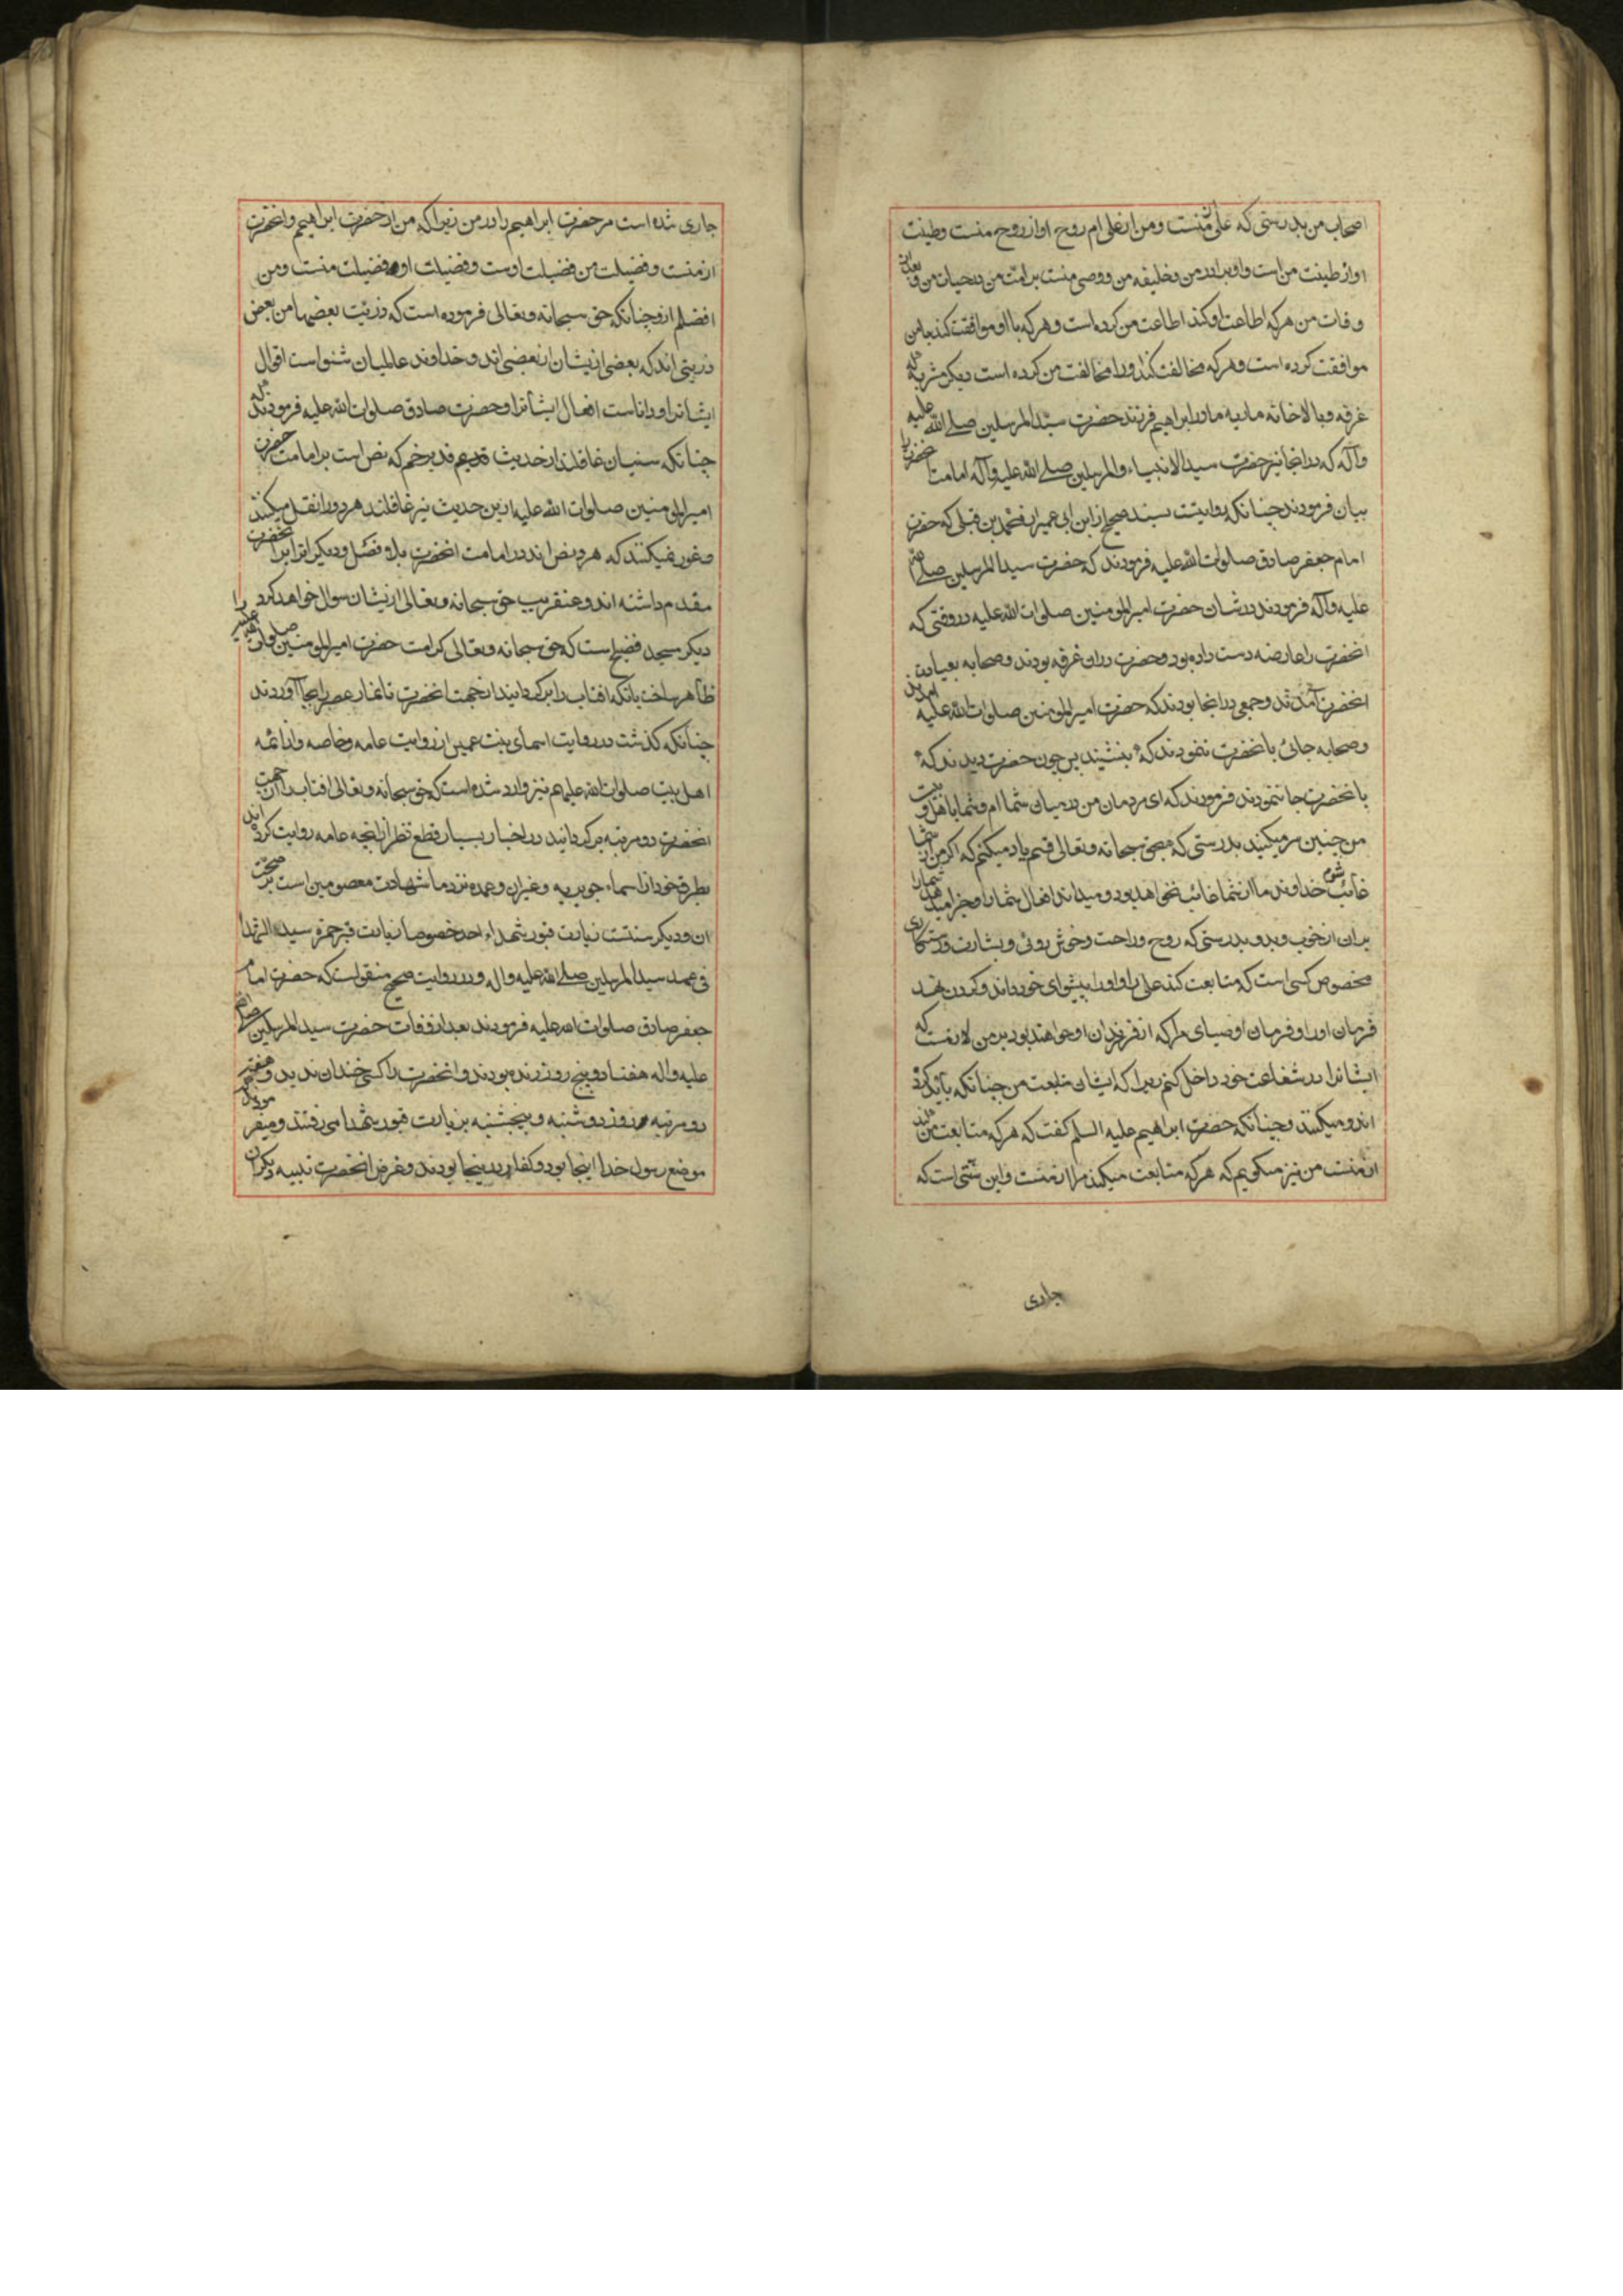 اصحاب من بدرستی که علی از منست و من از علی ام روح او از روح منست و طینت
او از طینت من است و او برادر من و خلیفه من و وصی منست بر امت من در حیات من و بعد از
وفات من هر که اطاعت او کند اطاعت من کرده است و هر که با او موافقت کند با من
موافقت کرده است و هر که مخالفت کند او را مخالفت من کرده است دیکر مشربه
غرفه و بالاخانه ماریه مادر ابراهیم فرزند حضرت سید المرسلین صلی الله علیه
وآله که در انجا نیز حضرت سید الانبیاء والمرسلین صلی الله علیه وآله امامت حضرت را
بیان فرمودند چنانکه روایتست بسند صحیح از ابن ابی عمیر از محمد بن قبلی که حضرت
امام جعفر صادق صلوات الله علیه فرمودند که حضرت سید المرسلین صلی الله
علیه وآله فرمودند در شان حضرت امیر المومنین صلوات الله علیه در وقتی که
انحضرت را عارضه دست داده بود و حضرت در او غرفه بودند و صحابه بعیادت
انحضرت آمدند و جمعی در انجا بودند که حضرت امیر المومنین صلوات الله علیه آمدند
و صحابه جائی بانحضرت ننمودند که بنشیند پس چون حضرت دیدند که
بانحضرت جا ننمودند فرمودند که ای مردمان من در میان شما ام و شما با اهل بیت
من چنین سر میکنید بدرستی که بحق سبحانه وتعالی قسم یاد میکنم که اکر من از شما
غائب شوم خداوند ما از شما غائب نخواهد بود و میداند افعال شما را و جزا میدهد شما را
بران از خوب و بد و بدرستی که روح و راحت و خوش روئی و بشارت و رستکاری
مخصوص کسی است که متابعت کند علی را و او را پیشوای خود داند و کردن نهد
فرمان او را و فرمان اوصیای مرا که از فرزندان او خواهند بود بر من لازمست که
ایشانرا در شفاعت خود داخل کنم زیرا که ایشان متابعت من چنانکه باید کرده
اند و میکنند و چنانکه حضرت ابراهیم علیه السلم کفت که هر که متابعت من کند
از منست من نیز میکویم که هر که متابعت میکند مرا از منست و این سنتی است که
جاری
جاری شده است مر حضرت ابراهیم را و در من زیرا که من از حضرت ابراهیم و انحضرت
از منست و فضیلت من فضیلت اوست و فضیلت او فضیلت منست و من
افضلم ازو چنانکه حق سبحانه وتعالی فرموده است که ذریت بعضها من بعض
ذریتی اند که بعضی از یشان از بعضی اند و خداوند عالمیان شنواست اقوال
ایشانرا و داناست افعال ایشانرا و حضرت صادق صلوات الله علیه فرمودند که
چنانکه سنیان غافلند از حدیث قدیم غدیر خم که نص است بر امامت حضرت
امیر المومنین صلوات الله علیه از ین حدیث نیز غافلند هر دو را نقل میکنند
و غور نمیکنند که هر دو نص اند در امامت انحضرت بلا فصل و دیکرانرا بر انحضرت
مقدم داشته اند و عنقریب حق سبحانه وتعالی از یشان سوال خواهد کرد
دیکر مسجد فضیخ است که حق سبحانه وتعالی کرامت حضرت امیر المومنین صلوات الله علیه را
ظاهر ساخت بانکه افتاب را بر کردانید از جهت انحضرت تا نماز عصر را بجا آوردند
چنانکه کذشت در روایت اسمای بنت عمیس از روایت عامه و خاصه و از ائمه
اهل بیت صلوات الله علیهم نیز وارد شده است که حق سبحانه وتعالی افتاب را از جهت
انحضرت دو مرتبه بر کردانید در اخبار بسیار قطع نظر از انچه عامه روایت کرده اند
بطرق خود از اسماء جویریه و غیر ان و عمده نزد ما شهادت معصومین است بر صحت
ان و دیکر سنتست زیارت قبور شهداء احد خصوصا زیارت قبر حمزه سید الشهدا
فی عهد سید المرسلین صلی الله علیه واله و در روایت صحیح منقولست که حضرت امام
جعفر صادق صلوات الله علیه فرمودند بعد از وفات حضرت سید المرسلین صلی الله
علیه واله هفتاد و پنج روز زنده بودند و انحضرت را کسی خندان ندید و هفته
دو مرتبه روز دوشنبه و پنجشنبه بزیارت قبور شهدا می رفتند و میفرمودند که
موضع رسول خدا اینجا بود و کفار در ینجا بودند و غرض انحضرت تنبیه دیکران